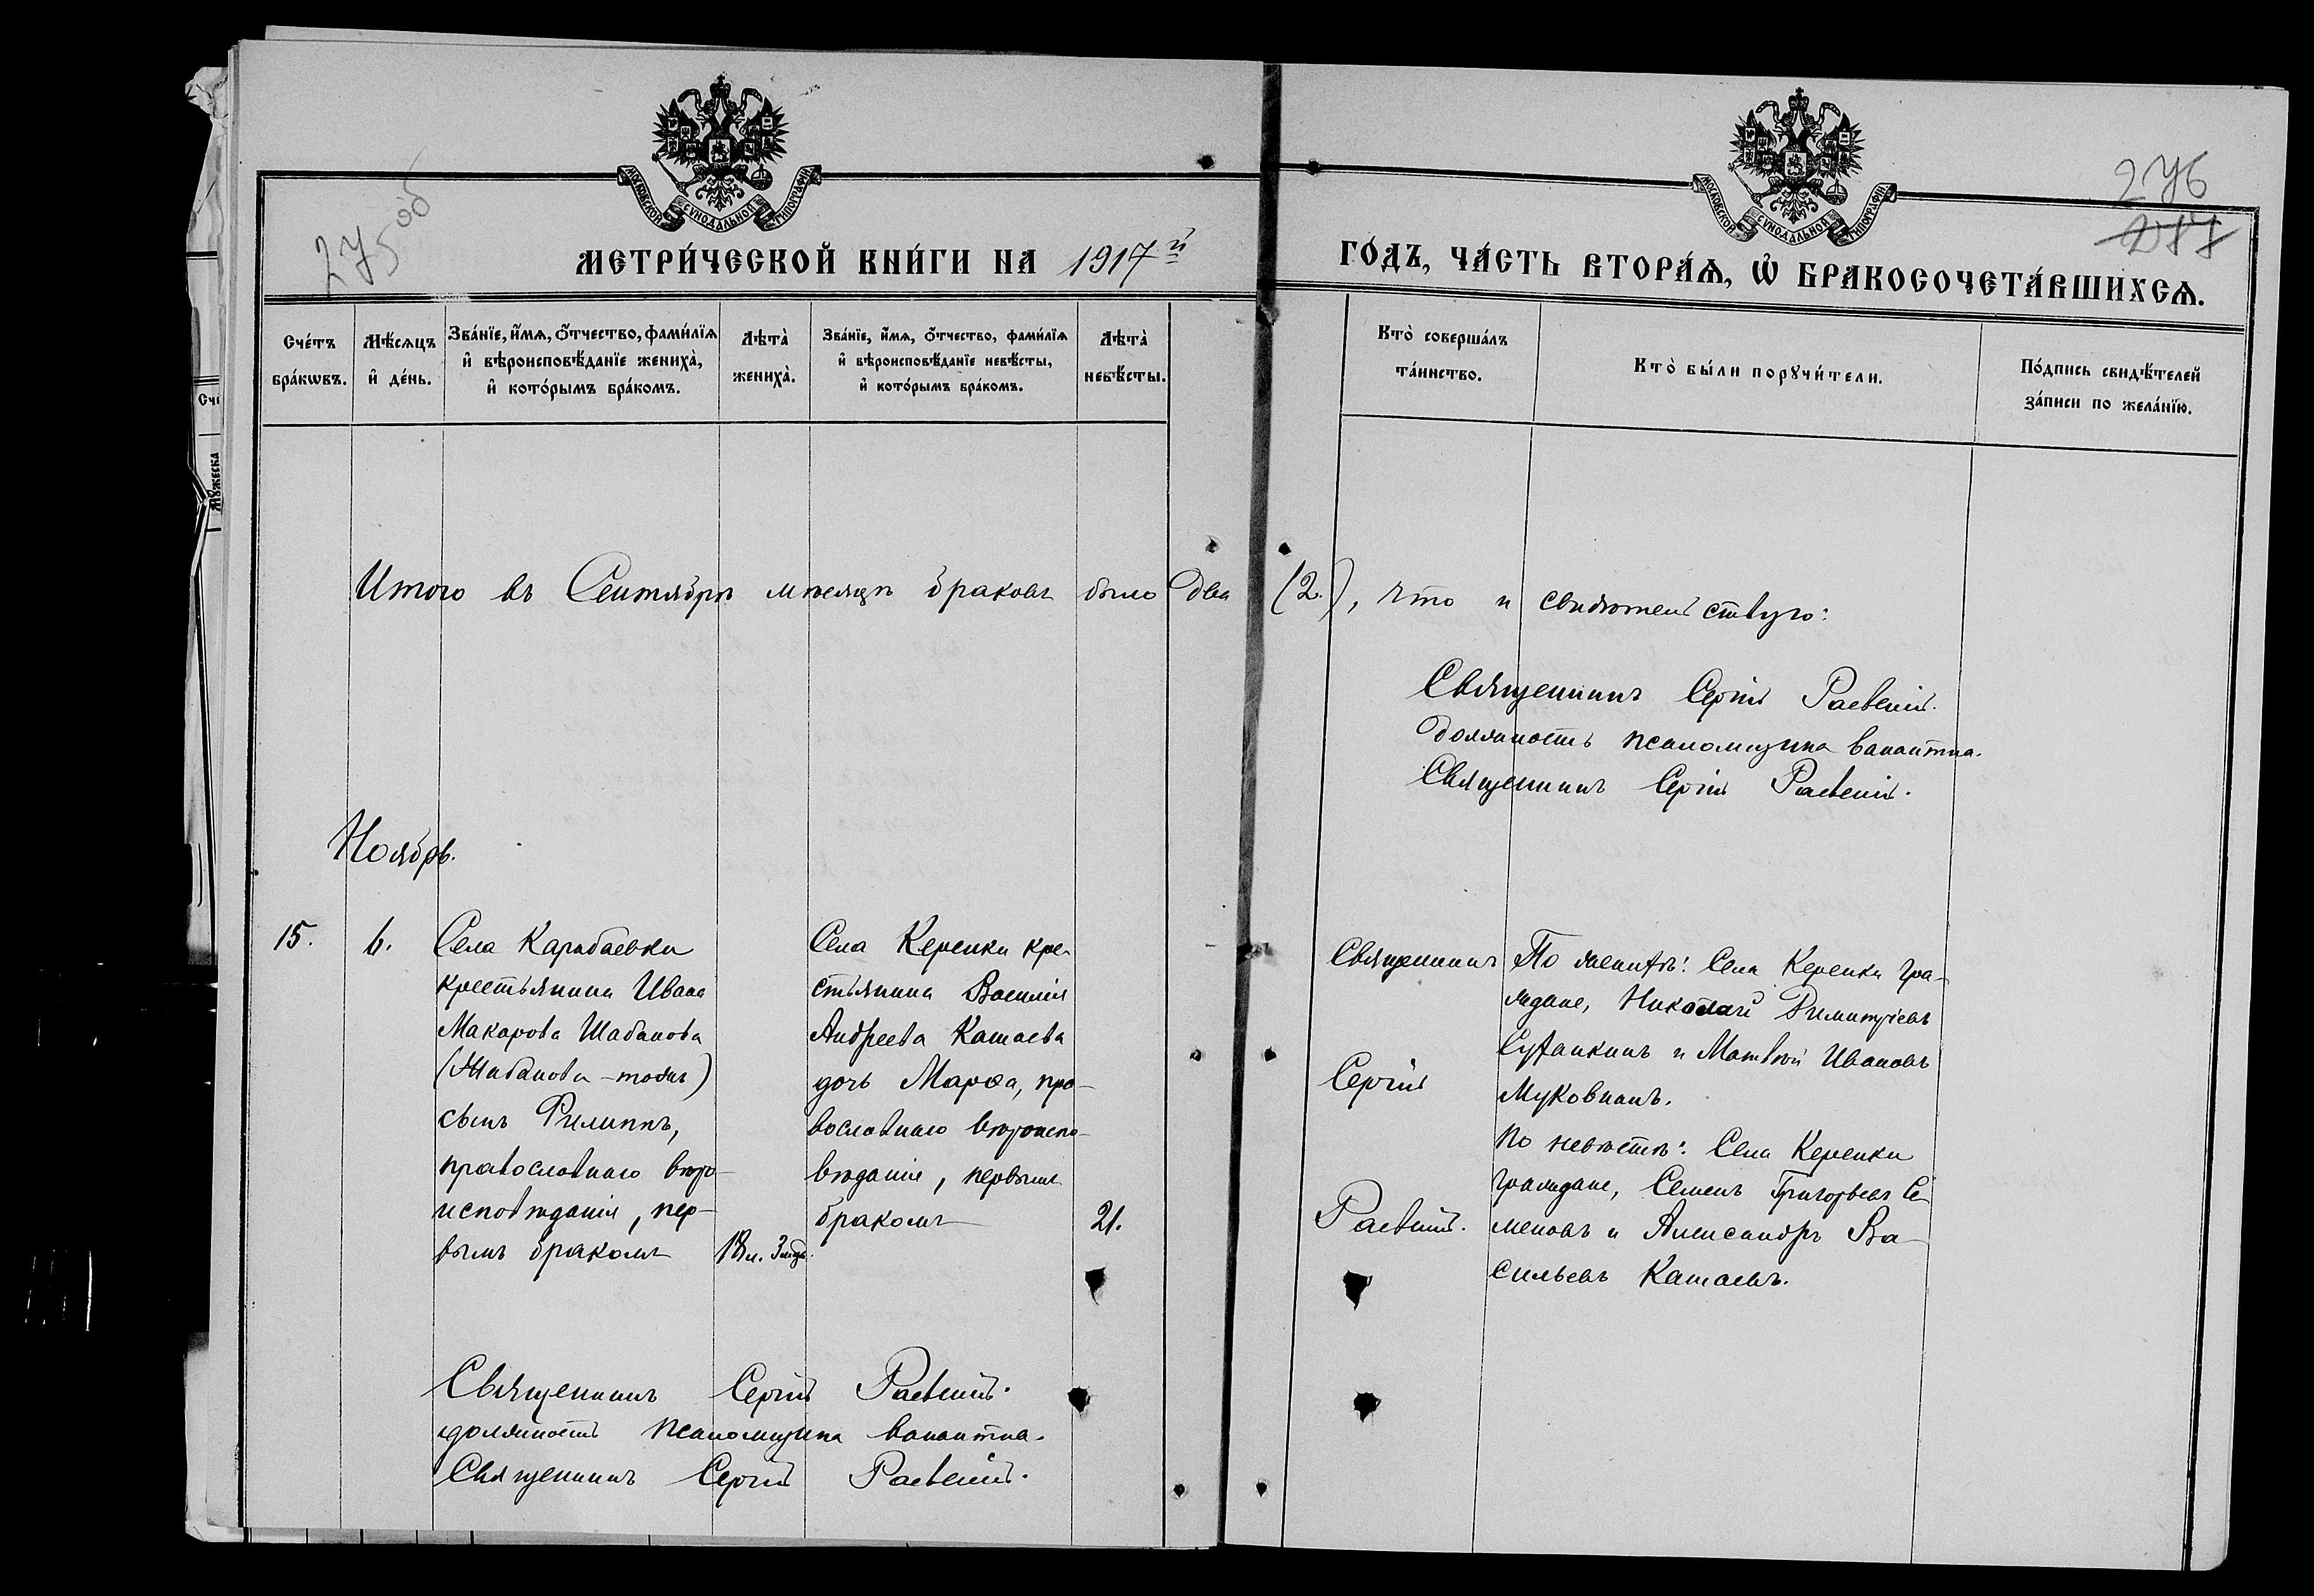 275 об
276
МОСКОВСКОЙ СѴНОДАЛЬНОЙ ТИПОГРАФІИ
МОСКОВСКОЙ СѴНОДАЛЬНОЙ ТИПОГРАФІИ
МЕТРИ́ЧЕСКОЙ КНИ́ГИ НА 1917й
ГО́ДЪ, ЧА́СТЬ ВТОРА́Ѧ, Ѽ БРАКОСОЧЕТА́ВШИХСѦ.
Сче́тъ бра́кѡвъ.
Мѣ́сѧцъ и҆ де́нь.
Зва́нїе, и҆́мѧ, ѻ҆́тчество, фами́лїѧ
и҆ вѣроисповѣ́данїе жениха̀,
и҆ кото́рымъ бра́комъ.
Лѣта̀ жениха̀.
Зва́нїе, и҆́мѧ, ѻ҆́тчество, фами́лїѧ
и҆ вѣроисповѣ́данїе невѣ́сты,
и҆ кото́рымъ бра́комъ.
Лѣта̀ невѣ́сты.
Кто̀ соверша́лъ
та́инство.
Кто̀ бы́ли порꙋчи́тели.
По́дпись свидѣ́телей
за́писи по жела́нїю.
Итого въ Сентябрѣ мѣсяцѣ браковъ было два (2.), что и свидѣтельствую:
Священникъ Сергій Раевскій.
должность псаломщика вакантна.
Священникъ Сергій Раевскій.
Ноябрь.
15.
6.
Села Карабаевки
крестьянина Ивана
Макарова Шабанова
(Жибанова-тожъ)
сынъ Филиппъ,
православнаго вѣро-
исповѣданія, пер-
вымъ бракомъ
18 л.
Села Керенки кре-
стьянина Василія
Андреева Катаева
дочь Марѳа, пра-
вославнаго вѣроиспо-
вѣданія, первымъ
бракомъ
21.
Священникъ
Сергій
Раевскій.
По женихѣ: Села Керенки гра-
ждане, Николай Димитріевъ
и Матвѣй Ивановъ
Муковнинъ.
По невѣстѣ: Села Керенки
граждане, Семенъ Григорьевъ Се-
меновъ и Александръ Ва-
сильевъ Катаевъ.
Священникъ Сергій Раевскій.
должность псаломщика вакантна.
Священникъ Сергій Раевскій.